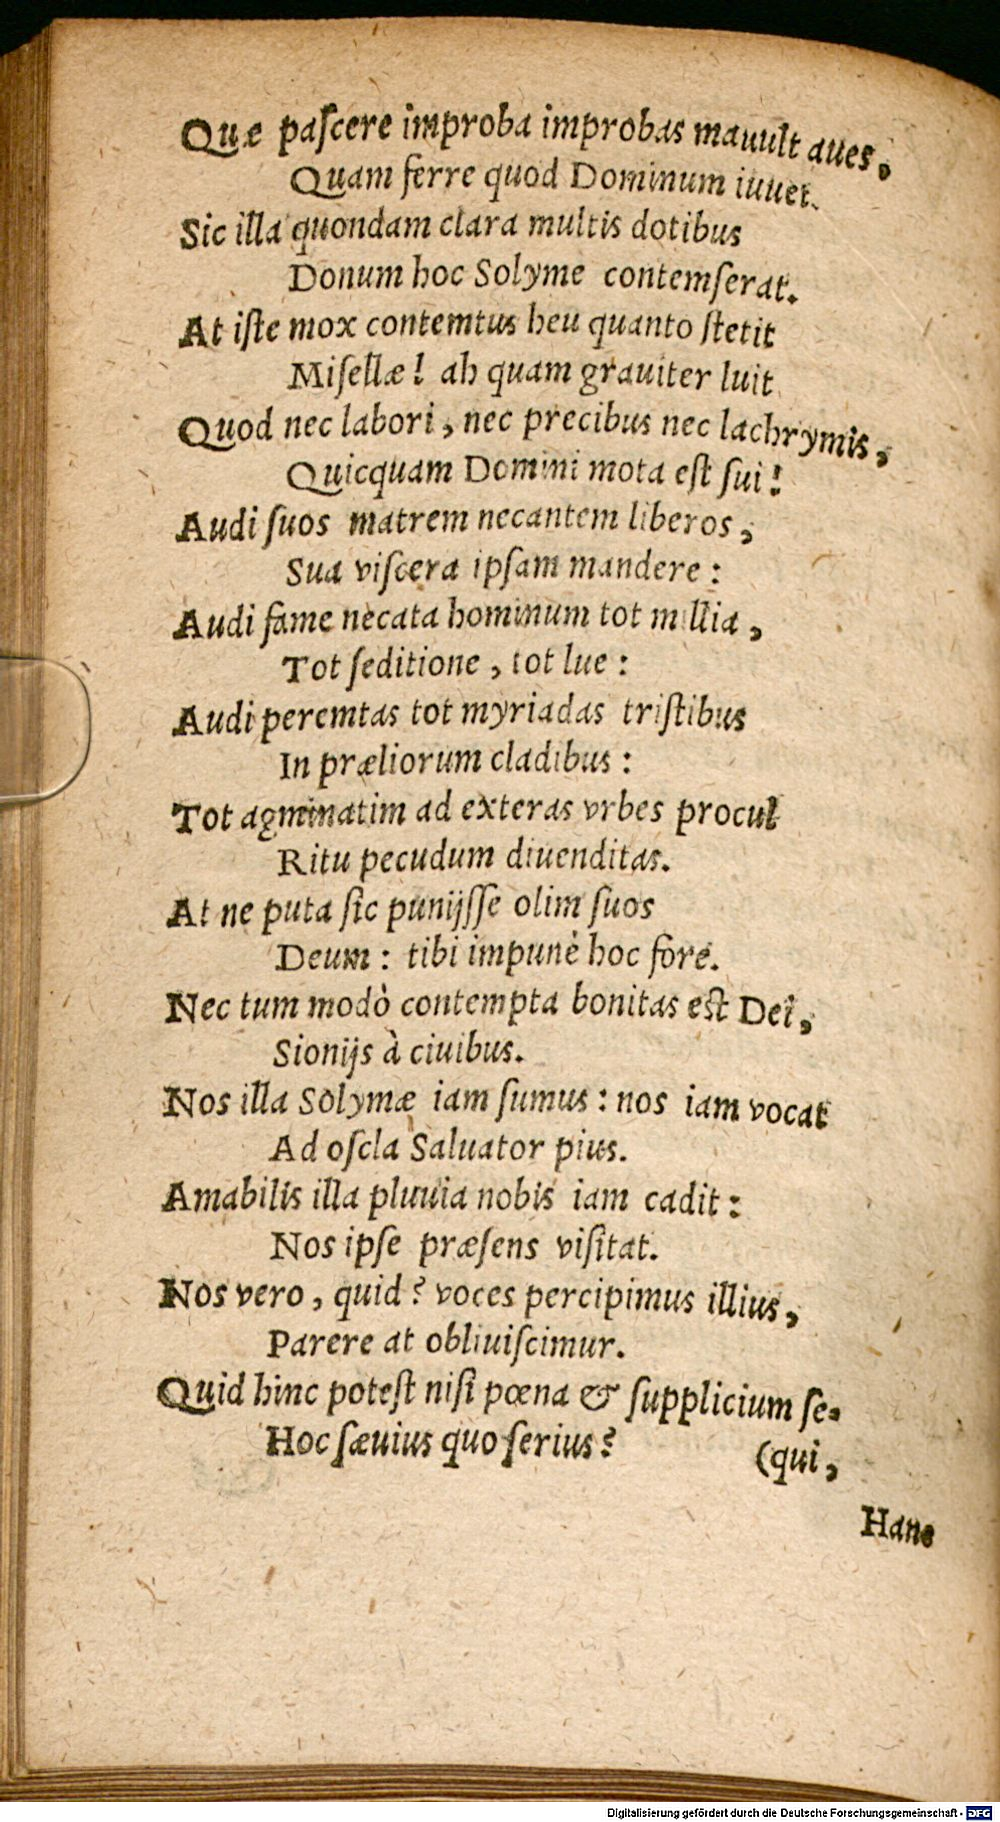 Quæ paſcere improba improbas mauult aues.
Quam ferre quod Dominum iuuet.
Sic illa quondam clara multis dotibus
Donum hoc Solyme contemſerat.
At iſte mox contemtus heu quanto ſtetit
Miſellæ! ah quam grauiter luit
Quod nec labori, nec precibus nec lachrymis,
Quicquam Domini mota eſt ſui!
Audi ſuos matrem necantem liberos,
Sua viſcera ipſam mandere:
Audi fame necata hominum tot millia,
Tot ſeditione, tot lue:
Audi peremtas tot myriadas triſtibus
In præliorum cladibus:
Tot agminatim ad exteras vrbes procul
Ritu pecudum diuenditas.
At ne puta ſic punijſſe olim ſuos
Deum: tibi impunè hoc fore.
Nec tum modò contempta bonitas eſt Dei,
Sionijs à ciuibus.
Nos illa Solymæ iam ſumus: nos iam vocat
Ad oſcla Saluator pius.
Amabilis illa pluuia nobis iam cadit:
Nos ipſe præſens viſitat.
Nos vero, quid? voces percipimus illius,
Parere at obliuiſcimur.
Quid hinc poteſt niſi pœna & ſupplicium ſe-
Hoc ſæuius quo ſerius? (qui,
Hanc
Digitalisierung gefördert durch die Deutsche Forschungsgemeinschaft - DFG